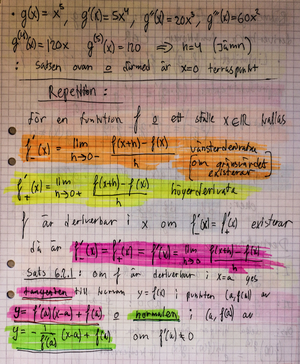 · g(x) = x⁵, g'(x) = 5x⁴, g''(x) = 20x³, g'''(x) = 60x²
g⁽⁴⁾(x) = 120x g⁽⁵⁾(x) = 120 ⇒ n=4 (jämn)
: Satsen ovan o därmed är x=0 terrasspunkt
Repetition :
för en funktion f o ett ställe x∈ℝ kallas
f'₋(x) = lim h→0- f(x+h) - f(x) / h vänsterderivata
om gränsvärdet existerar
f'₊(x) = lim h→0+ f(x+h) - f(x) / h högerderivata
f är deriverbar i x om f'₋(x) = f'₊(x) existerar
då är f'₋(x) = f'₊(x) = f'(x) = lim h→0 f(x+h) - f(x) / h
Sats 6.2.1 : om f är deriverbar i x=a ges
tangenten till kurvan y=f(x) i punkten (a, f(a)) av
y = f'(a)(x-a) + f(a) o normalen i (a, f(a)) av
y = - 1/f'(a) (x-a) + f(a) om f'(a) ≠ 0